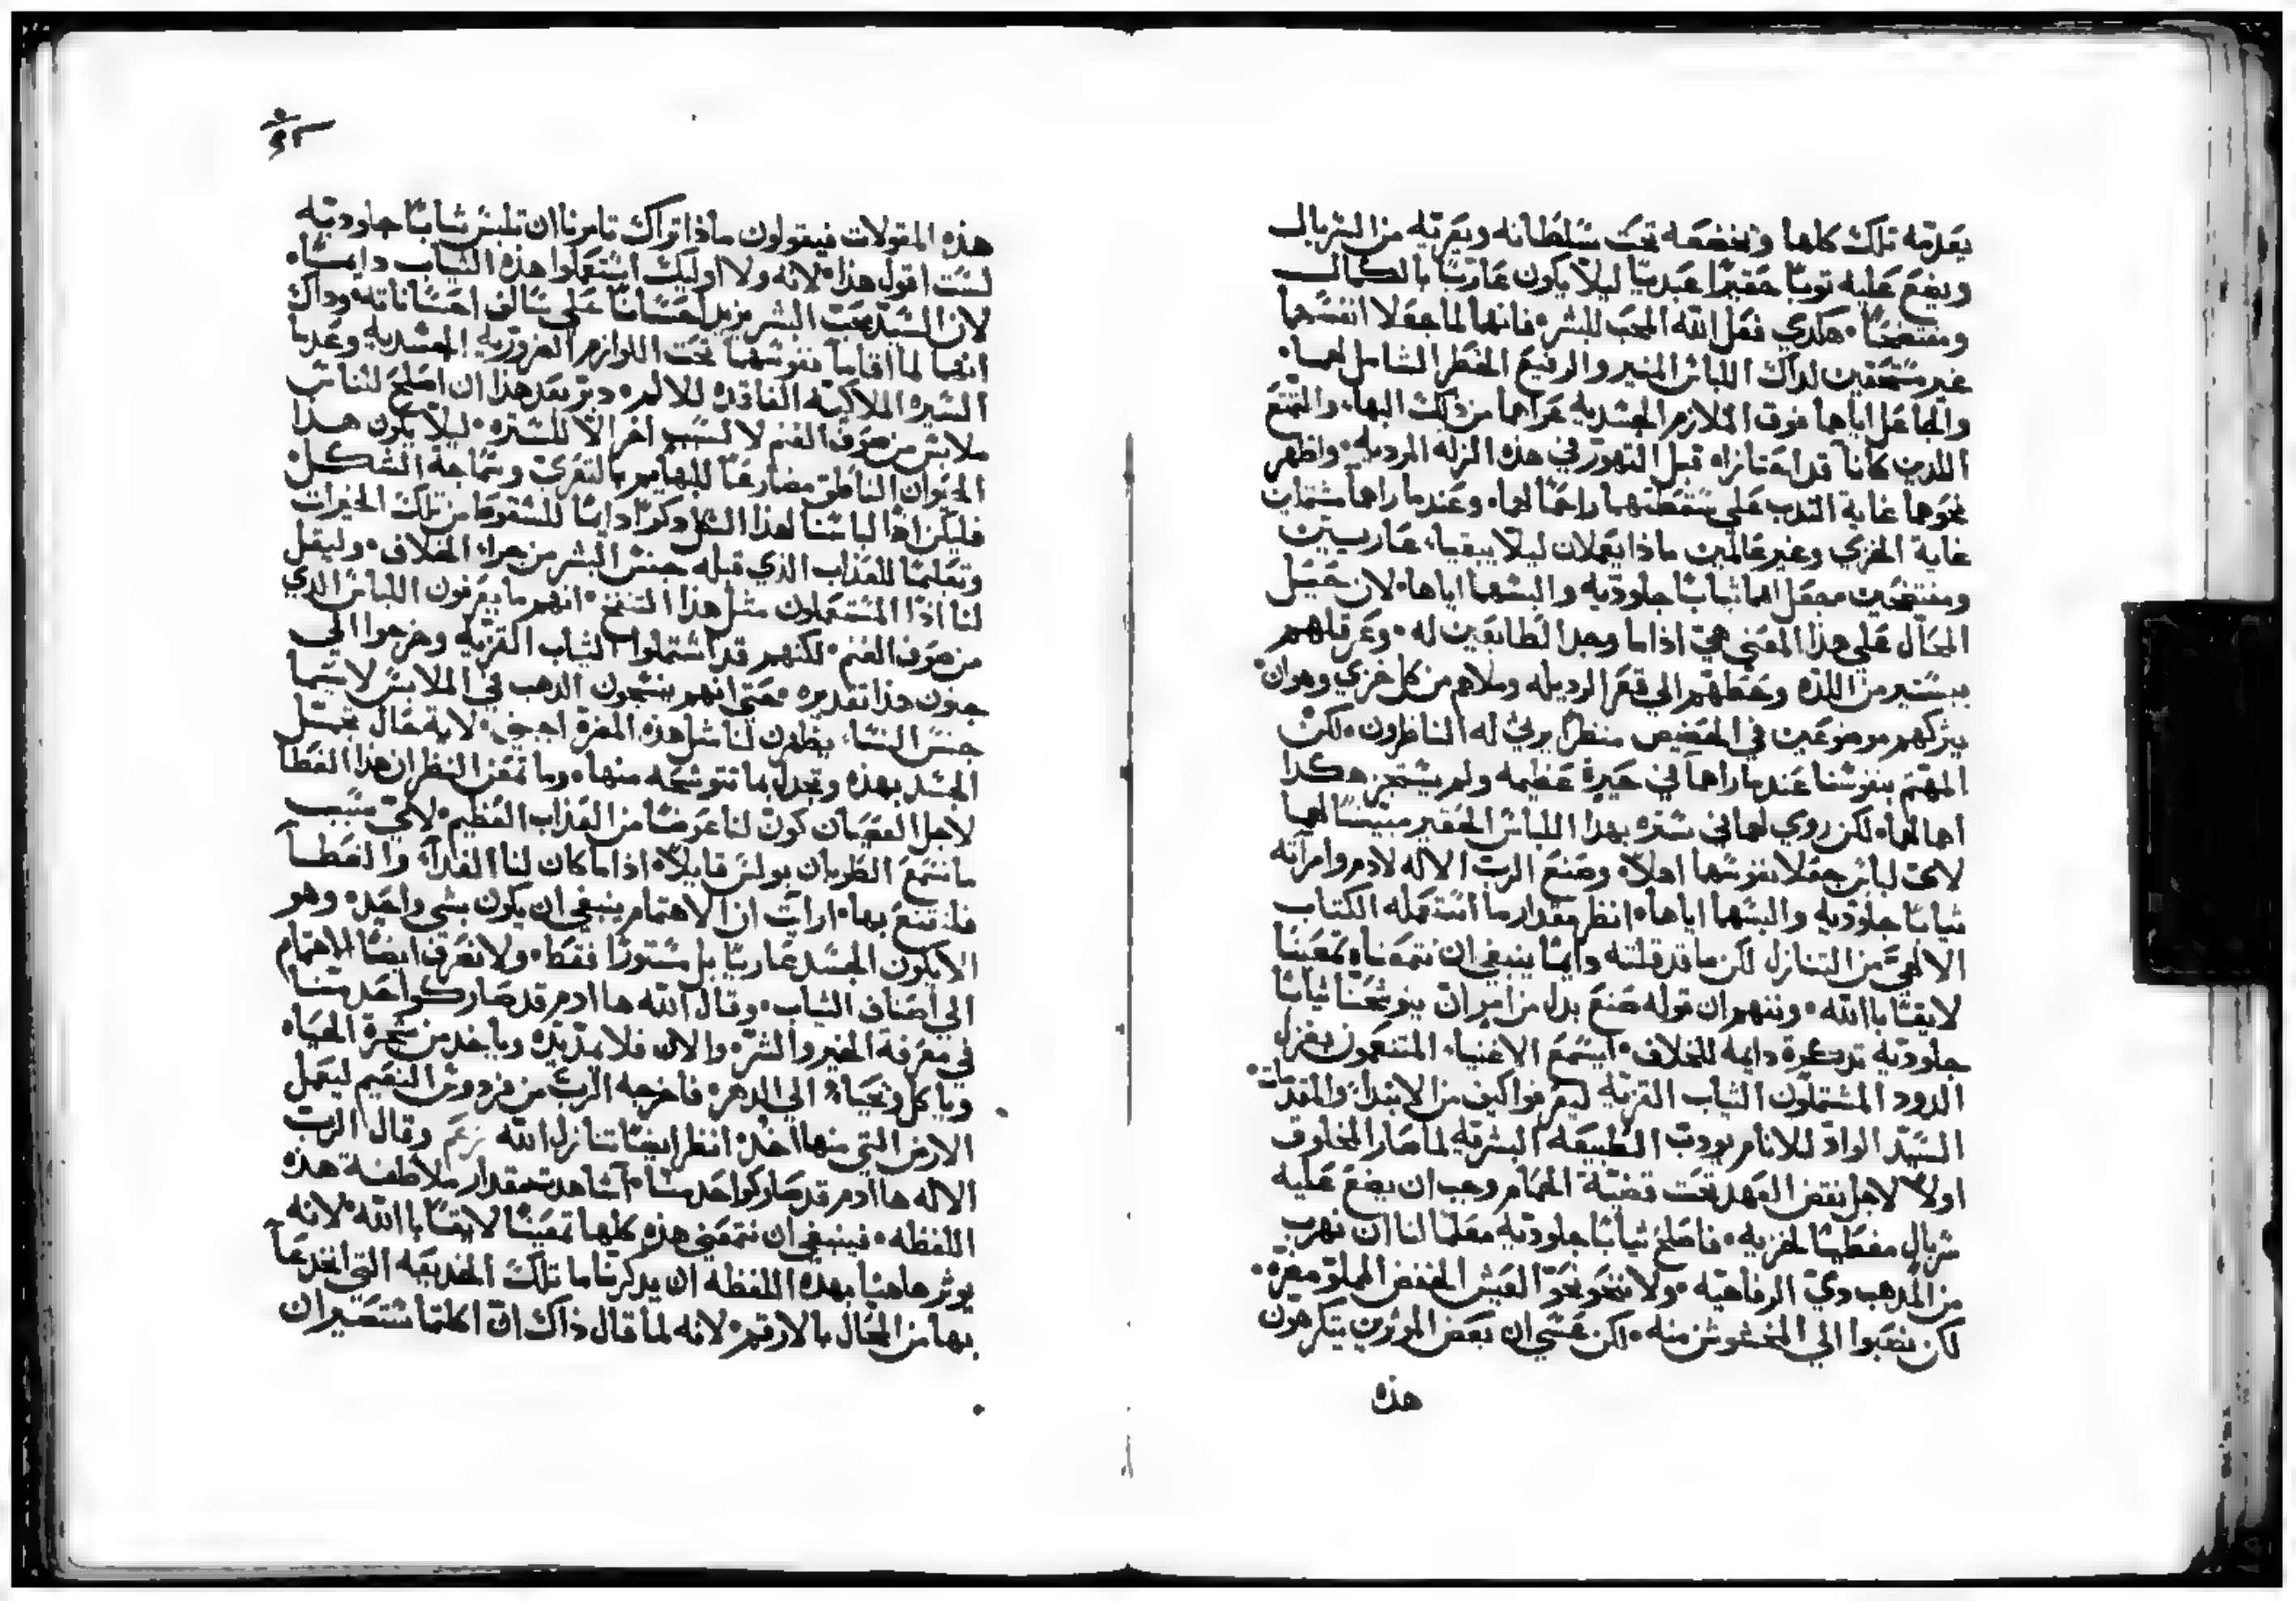 يعدمه تلك كلها ويخضعه تحت سلطانه ويعريه من السربال
ويضع عليه توبًا حقيرًا عبديًا ليلا يكون عاريًا بالكمال
ومفتضحًا. هكدي فعل الله المحب للبشر. فانهما لما جعلا انفسهما
غير مستحقين لداك اللباس المنير والرفيع الخطر الشامل لهما.
والجاعل اياهما فوق اللازم الجسديه عراهما من ذلك البها. والتمتع
اللدين كانا قد احتازاه قبل التهور في هذه الزله المرديه. واظهر
نحوهما غاية التدب علي سقطتهما راحمًا لهما. وعندما راهما مشتملين
غاية الخزي وغير عالمين ماذا يعملان ليلا يبقيا. عاريين
ومفتضحين فجعل لهما ثيابًا جلوديه والبسهما اياها. لان حيل
المحال علي هذا المعني هي اذا ما وجد الطايعين له. وعرقلهم
بيسير من اللذه وحطهم الي قعر الرديله وملاهم من كل خزي وهوان.
يتركهم موضوعين في الحضيض منظرًا يرتي له الناظرون. لكن
المهتم بنفوسنا عندما راهما في حيرة عظيمه ولم يستجز هكدا
اهمالهما. لكن روي لهما في ستره بهدا اللباس الحقير مبينًا لهما
لاي لباس جعلا نفوسهما اهلاً. وصنع الرب الاله لادم وامراته
ثيابًا جلوديه والبسهما اياها. انظر مقدار ما استعمله الكتاب
الالهي من التنازل لكن ما قد قلته دايمًا ينبغي ان نتمعناه تمعينًا
لايقًا بالله. ونفهم ان قوله صنع بدل من امر ان يتوشحا ثيابًا
جلوديه تدكرة دايمه للخلاف. ايسمع الاغنياء المتنعمون بغزل
الدود المشتملون الثياب القزيه ليعرفوا كيف من الابتداء والمقدمات
السيد الواد للانام يودب الطبيعه البشريه لما صار المخلوق
اولاً لاجل نقض العهد تحت قضية الحمام وجب ان يضع عليه
سربال مغطيًا لخزيه. فاصلح ثيابًا جلوديه معلمًا لنا ان نهرب
من المدهب دي الرفاهيه. ولا ننحو نحو العيش الخفض المملو معزة.
لكن نصبوا الي المخشوشن منه. لكن عسي ان بعض الموثرين يتكرهون
هذه
هذه المقولات فيقولون ماذا تراك تامرنا ان تلبس ثيابًا جلوديه
لست اقول هذا. لانه ولا اوليك استعملوا هذه الثياب دايمًا.
لان السيد محب البشر يزيد احسانًا علي سالف احساناته. وداك
انهما لما اقاما نفوسهما تحت اللوازم الضروريه الجسديه وعدما
السيره الملاكيه الفاقده للالم. دبر بعد هذا ان اصلح للناس
ملابس من صوف الغنم لا لسبب اخر الا للستره. ليلا يكون هدا
الحيوان الناطق مضارعًا للبهايم بالتعري وسماجة الشكل.
فليكن اذًا لباسنا لهذا الشكل دكرًا دايمًا للسقوط من تلك الخيرات
وتعليمًا للعذاب الذي قبله جنس البشر من جراء الخلاف. وليقل
لنا اذًا المستعملون مثل هذا التنخ. انهم ما يعرفون اللباس الدي
من صوف الغنم. لكنهم قد اشتملوا الثياب القزيه وخرجوا الي
جنون هذا تقديره. حتي انهم ينسجون الدهب في الملابس لاسيما
جنس النساء يظهرن لنا مثل هذه المعزة اجبني. لاية حال تجمل
الجسد بهده وتجدل بما تتوشحه منها. وما تمعن النظر ان هذا الغطا
لاجل العصيان كون لنا عوضًا من العذاب العظيم. لاي سبب
ما تسمع الطوبان بولس قايلاً. اذا ما كان لنا الغداء والغطا
فلنقتنع بها. ارايت ان الاهتمام ينبغي ان يكون بشي واحد. وهو
الا يكون الجسد عاريًا بل مستورًا فقط. ولا نعرف ايضًا الاهتمام
الي اصناف الثياب. وقال الله ها ادم قد صار كواحد منا
في معرفة الخير والشر. والان فلا يمد يده وياخد من شجرة الحياه
وياكل ويحيا الي الدهر. فاخرجه الرب من فردوس النعيم ليعمل
الارض التي منها اخد. انظر ايضًا تنازل الله زعم وقال الرب
الاله ها ادم قد صار كواحد منا. اشاهدت مقدار ملاطفة هذه
اللفظه. فينبغي ان نتمعني هذه كلها تمعينًا لايقًا بالله. لانه
يوثر هاهنا بهده اللفظه ان يدكرنا ما تلك الخديعه التي انخدعا
بها من المحال بالارقم. لانه لما قال ذاك ان اكلتما ستصيران